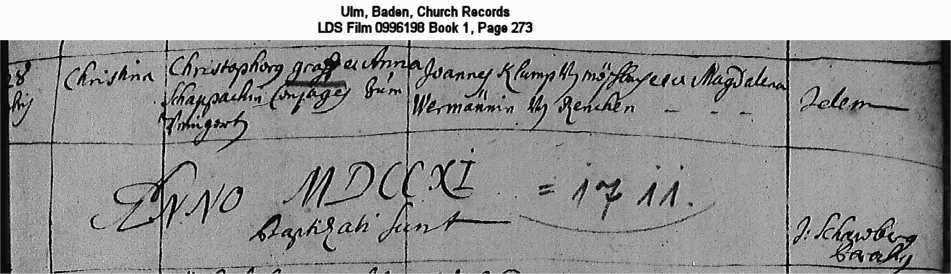 Ulm, Baden, Church Records
LDS Film 0996198 Book 1, Page 273
28
Christina
Christophorg graff et Anna
Schappachin Conjuges
Joannes Klump et Magdalena
Wermännin Renchen - - -
Idem
ANNO MDCCXI = 1711.
Baptizati sunt
J: Schawberg